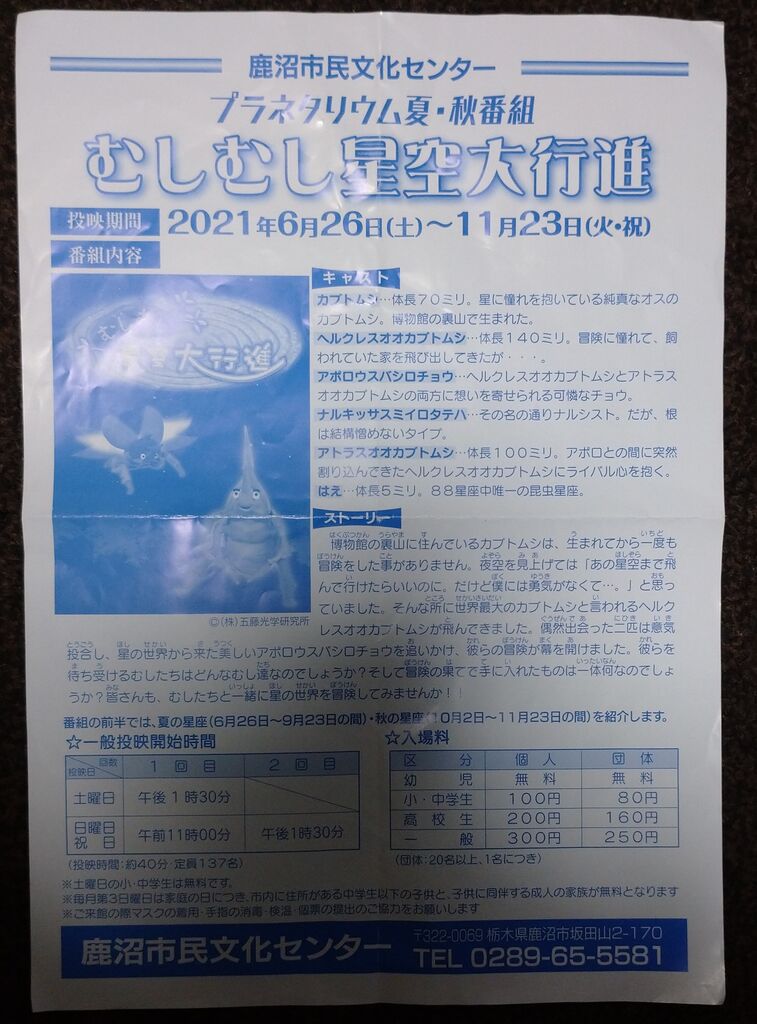 鹿沼市民文化センター
プラネタリウム夏・秋番組
むしむし星空大行進
投映期間 2021年6月26日(土)～11月23日(火・祝)
番組内容
大行進
©(株)五藤光学研究所
キャスト
カブトムシ…体長70ミリ。星に憧れを抱いている純真なオスの
カブトムシ。博物館の裏山で生まれた。
ヘルクレスオオカブトムシ…体長140ミリ。冒険に憧れて、飼
われていた家を飛び出してきたが・・・。
アポロウスバシロチョウ…ヘルクレスオオカブトムシとアトラス
オオカブトムシの両方に想いを寄せられる可憐なチョウ。
ナルキッサスミイロタテハ…その名の通りナルシスト。だが、根
は結構憎めないタイプ。
アトラスオオカブトムシ…体長100ミリ。アポロとの間に突然
割り込んできたヘルクレスオオカブトムシにライバル心を抱く。
はえ…体長5ミリ。88星座中唯一の昆虫星座。
ストーリー
博物館の裏山に住んでいるカブトムシは、生まれてから一度も
冒険をした事がありません。夜空を見上げては「あの星空まで飛
んで行けたらいいのに。だけど僕には勇気がなくて…。」と思っ
ていました。そんな所に世界最大のカブトムシと言われるヘルク
レスオオカブトムシが飛んできました。偶然出会った二匹は意気
投合し、星の世界から来た美しいアポロウスバシロチョウを追いかけ、彼らの冒険が幕を開けました。彼らを
待ち受けるむしたちはどんなむし達なのでしょうか？そして冒険の果てで手に入れたものは一体何なのでしょ
うか？皆さんも、むしたちと一緒に星の世界を冒険してみませんか！！
番組の前半では、夏の星座(6月26日～9月23日の間)・秋の星座(10月2日～11月23日の間)を紹介します。
☆一般投映開始時間
回数 投映日 1回目 2回目
土曜日 午後1時30分
日曜日 祝日 午前11時00分 午後1時30分
(投映時間：約40分・定員137名)
☆入場料
区分 個人 団体
幼児 無料 無料
小・中学生 100円 80円
高校生 200円 160円
一般 300円 250円
(団体：20名以上、1名につき)
※土曜日の小・中学生は無料です。
※毎月第3日曜日は家庭の日につき、市内に住所がある中学生以下の子供と、子供に同伴する成人の家族が無料となります
※ご来館の際マスクの着用・手指の消毒・検温・個票の提出のご協力をお願いします
鹿沼市民文化センター
〒322-0069 栃木県鹿沼市坂田山2-170
TEL 0289-65-5581